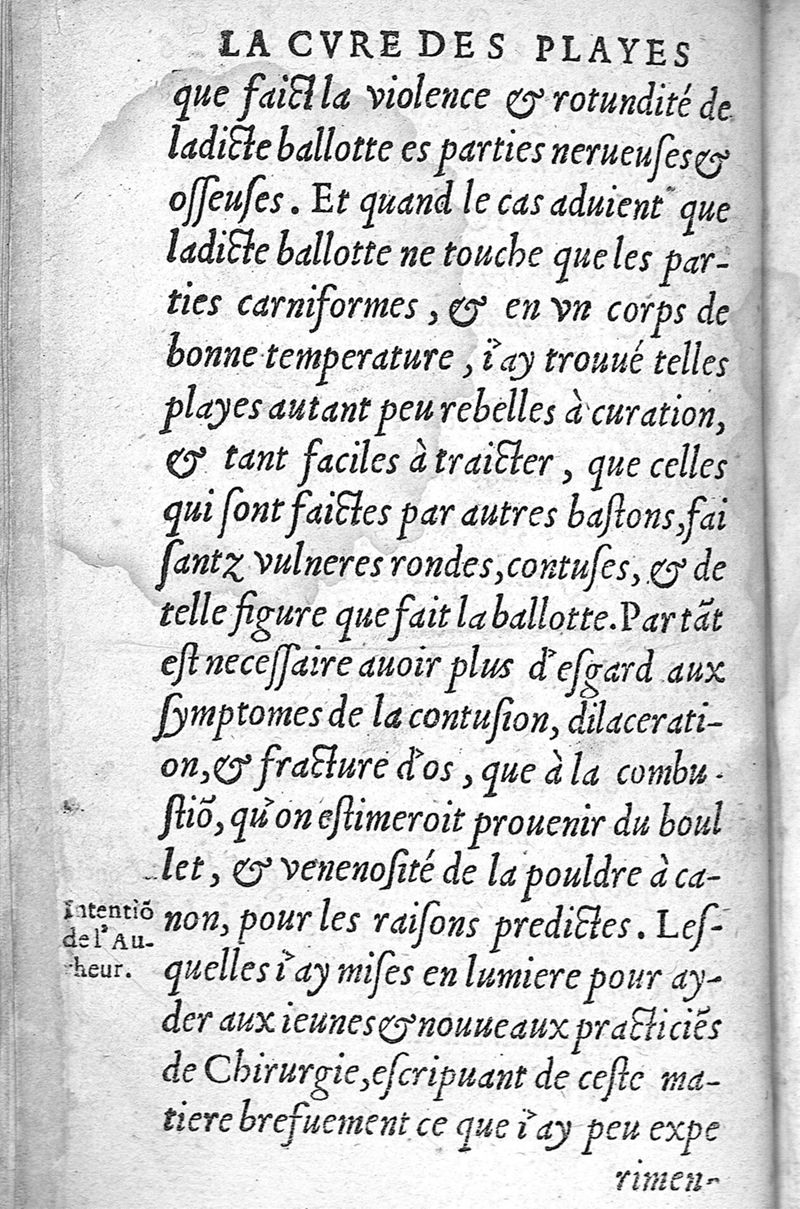 LA CVRE DES PLAYES
que faict la violence & rotundité de
ladicte ballotte es parties nerueuſes &
oſſeuſes. Et quand le cas aduient que
ladicte ballotte ne touche que les par-
ties carniformes, & en vn corps de
bonne temperature, i'ay trouué telles
playes autant peu rebelles à curation,
& tant faciles à traicter, que celles
qui ſont faictes par autres baſtons, fai
ſantz vulneres rondes, contuſes, & de
telle figure que fait la ballotte. Partãt
eſt neceſſaire auoir plus d'eſgard aux
ſymptomes de la contuſion, dilacerati-
on, & fracture d'os, que à la combu-
ſtiõ, qu'on eſtimeroit prouenir du boul
let, & venenoſité de la pouldre à ca-
non, pour les raiſons predictes. Leſ-
quelles i'ay miſes en lumiere pour ay-
der aux ieunes & nouueaux practiciẽs
de Chirurgie, eſcripuant de ceſte ma-
tiere brefuement ce que i'ay peu expe
rimen-
Intentiõ
de l'Au-
theur.